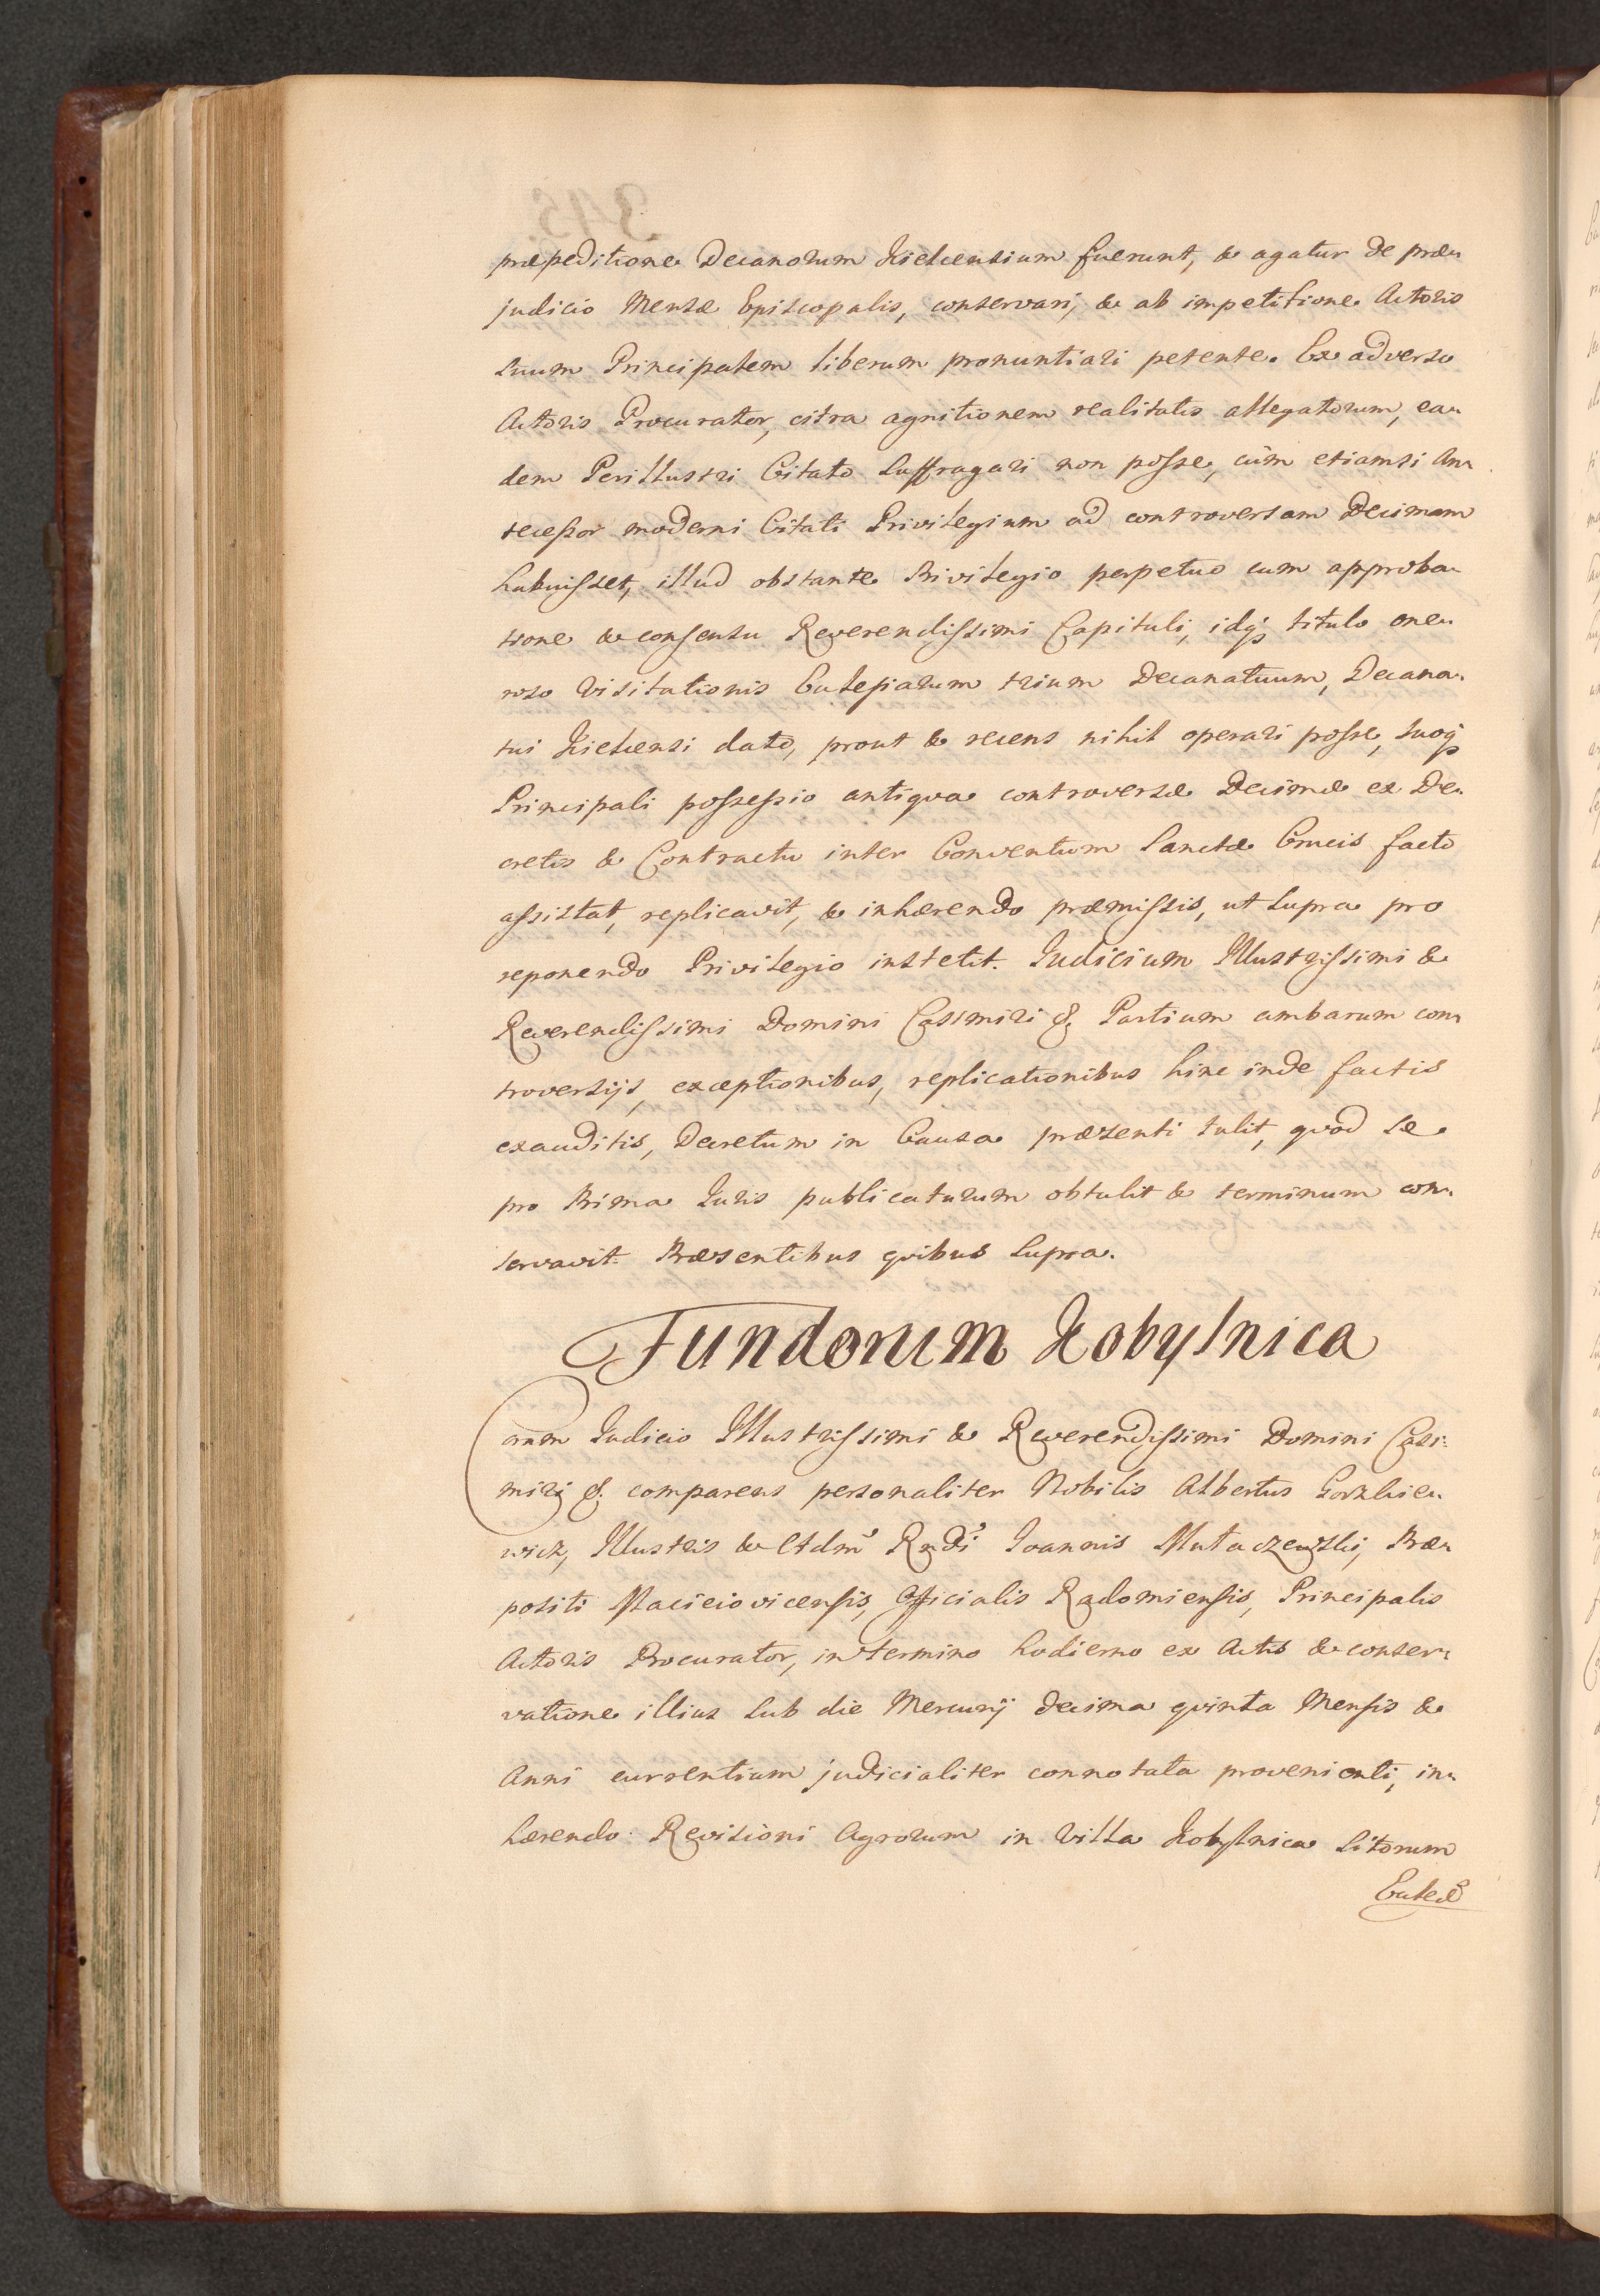 præpeditione Decanorum Kielcensium fuerunt, & agatur de præ-
judicio Mensæ Episcopalis, conservari, & ab impetitione Actoris
suum Principalem liberum pronuntiari petente. Ex adverso
Actoris Procurator, citra agnitionem realitatis allegatorum, ea-
dem Perillustri Citato suffragari non posse, cùm etiamsi An-
tecessor moderni Citati Privilegium ad controversam Decimam
habuisset, illud obstante Privilegio perpetuo cum approba-
tione & consensu Reverendissimi Capituli, idq; titulo one-
roso Visitationis Ecclesiarum trium Decanatuum, Decana-
tui Kielcensi dato, prout & recens nihil operari posse, suoq;
Principali possessio antiqva controversæ Decimæ ex De-
cretis & Contractu inter Conventum Sanctæ Crucis facto
assistat, replicavit, & inhærendo præmissis, ut supra pro
reponendo Privilegio institit. Judicium Illustrissimi &
Reverendissimi Domini Casimiri &. Partium ambarum con-
troversijs, exceptionibus, replicationibus hinc inde factis
exauditis, Decretum in Causa præsenti tulit, qvod se
pro Prima Juris publicaturum obtulit & terminum con-
servavit. Præsentibus qvibus supra.
Fundorum Kobylnica
Coram Judicio Illustrissimi & Reverendissimi Domini Casi-
miri &. comparens personaliter Nobilis Albertus
Illustris & Adm Rndi Joannis Præ-
positi Macieiovicensis, Officialis Radomiensis, Principalis
Actoris Procurator, in termino hodierno ex Actis & conser-
vatione illius sub die Mercurij decima qvinta Mensis &
Anni currentium judicialiter connotata provenienti, in-
hærendo Revisioni Agrorum in Villa Kobylnica sitorum
Eccleæ